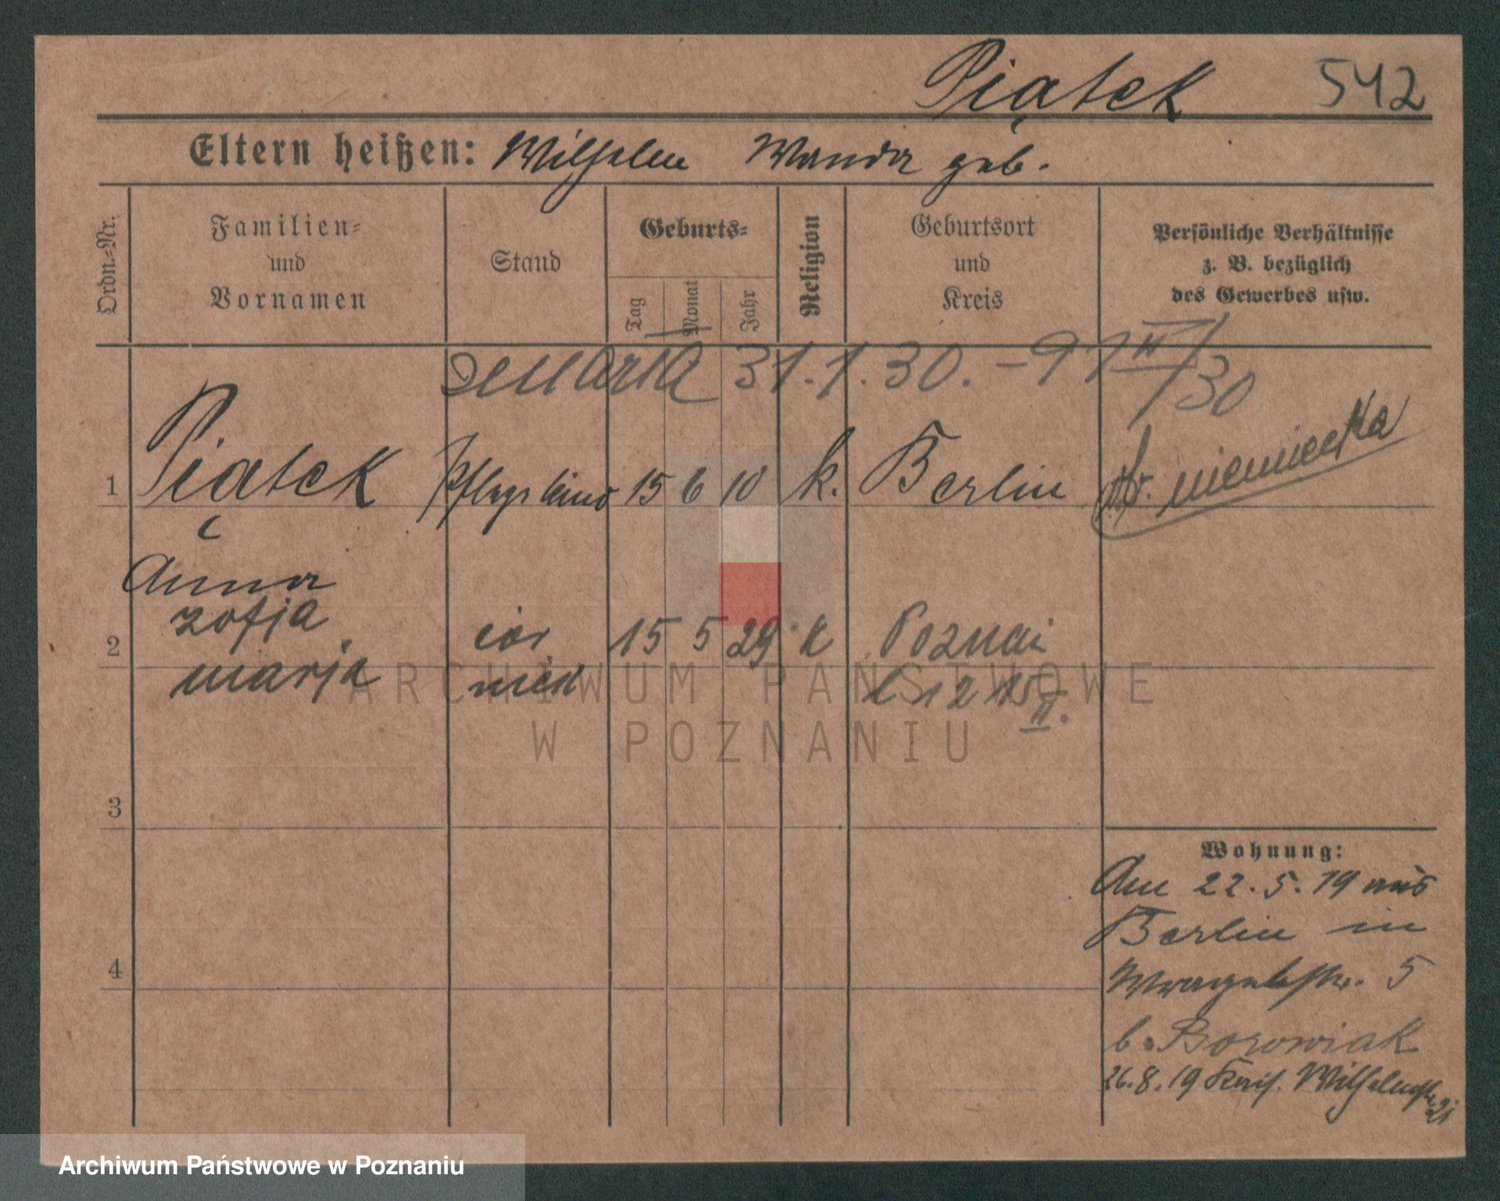 Piątek 542
Eltern heißen: Wilhelm Wanda geb.
Ordn.-Nr.
Familien- und Vornamen
Stand
Geburts-
Tag
Monat
Jahr
Religion
Geburtsort und Kreis
Persönliche Verhältnisse z. B. bezüglich des Gewerbes usw.
zmarła 31.1.30. - 91 II/30
1 Piątek Pflegekind 15 6 10 k. Berlin niemiecka
Anna
Zofja
2 cór 15 5 29 k Poznań
Marja
ARCHIWUM PAŃSTWOWE
W POZNANIU
3
Wohnung:
Am 22.5.19 aus
Berlin in
4
Wrangelstr. 5
b. Borowiak
26.8.19 Kais. Wilhelmstr. 21
Archiwum Państwowe w Poznaniu